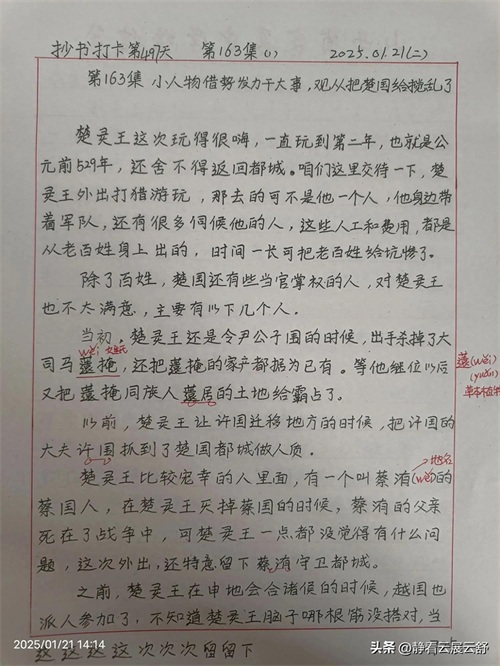 抄书打卡第497天 第163集(1) 2025.01.21(二)
第163集 小人物借势发力干大事，观从把楚国给搅乱了
楚灵王这次玩得很嗨，一直玩到第二年，也就是公
元前529年，还舍不得返回都城。咱们这里交待一下，楚
灵王外出打猎游玩，那去的可不是他一个人，他身边带
着军队，还有很多伺候他的人，这些人工和费用，都是
从老百姓身上出的，时间一长可把老百姓给坑惨了。
除了百姓，楚国还有些当官掌权的人，对楚灵王
也不太满意，主要有以下几个人。
当初，楚灵王还是令尹公子围的时候，出手杀掉了大
wěi
司马薳掩，还把薳掩的家产都据为已有。等他继位以后
薳(wěi)
(yuǎn)
又把薳掩同族人薳居的土地给霸占了。
以前，楚灵王让许国迁移地方的时候，把许国的
大夫许围抓到了楚国都城做人质。
地名
楚灵王比较宠幸的人里面，有一个叫蔡洧(wěi)的
蔡国人，在楚灵王灭掉蔡国的时候，蔡洧的父亲
死在了战争中，可楚灵王一点都没觉得有什么问
题，这次外出，还特意留下蔡洧守卫都城。
之前，楚灵王在申地会合诸侯的时候，越国也
派人参加了，不知道楚灵王脑子哪根筋没搭对，当
这这这这次次次留留下
2025/01/21 14:14
头条 @静看云展云舒